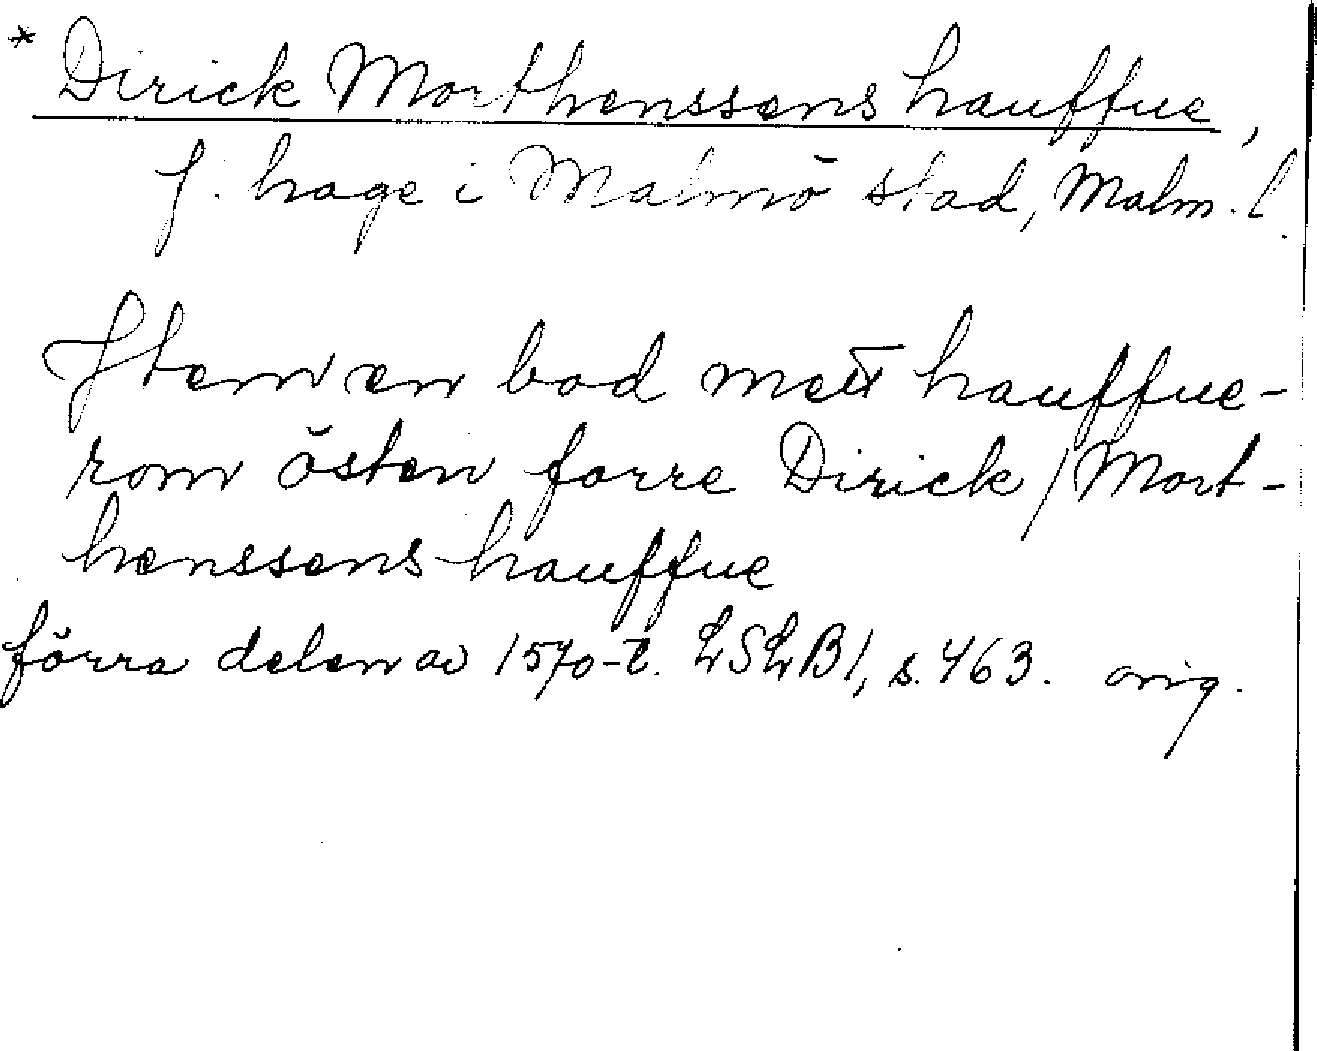 * Dirick Morthenssens hauffue,
f. hage i Malmö stad, Malm. l.
Item en bod mett hauffue-
rom östen forre Dirick / Mort-
henssens hauffue
förra delen av 1570-t. LSLB 1, s. 463. orig.